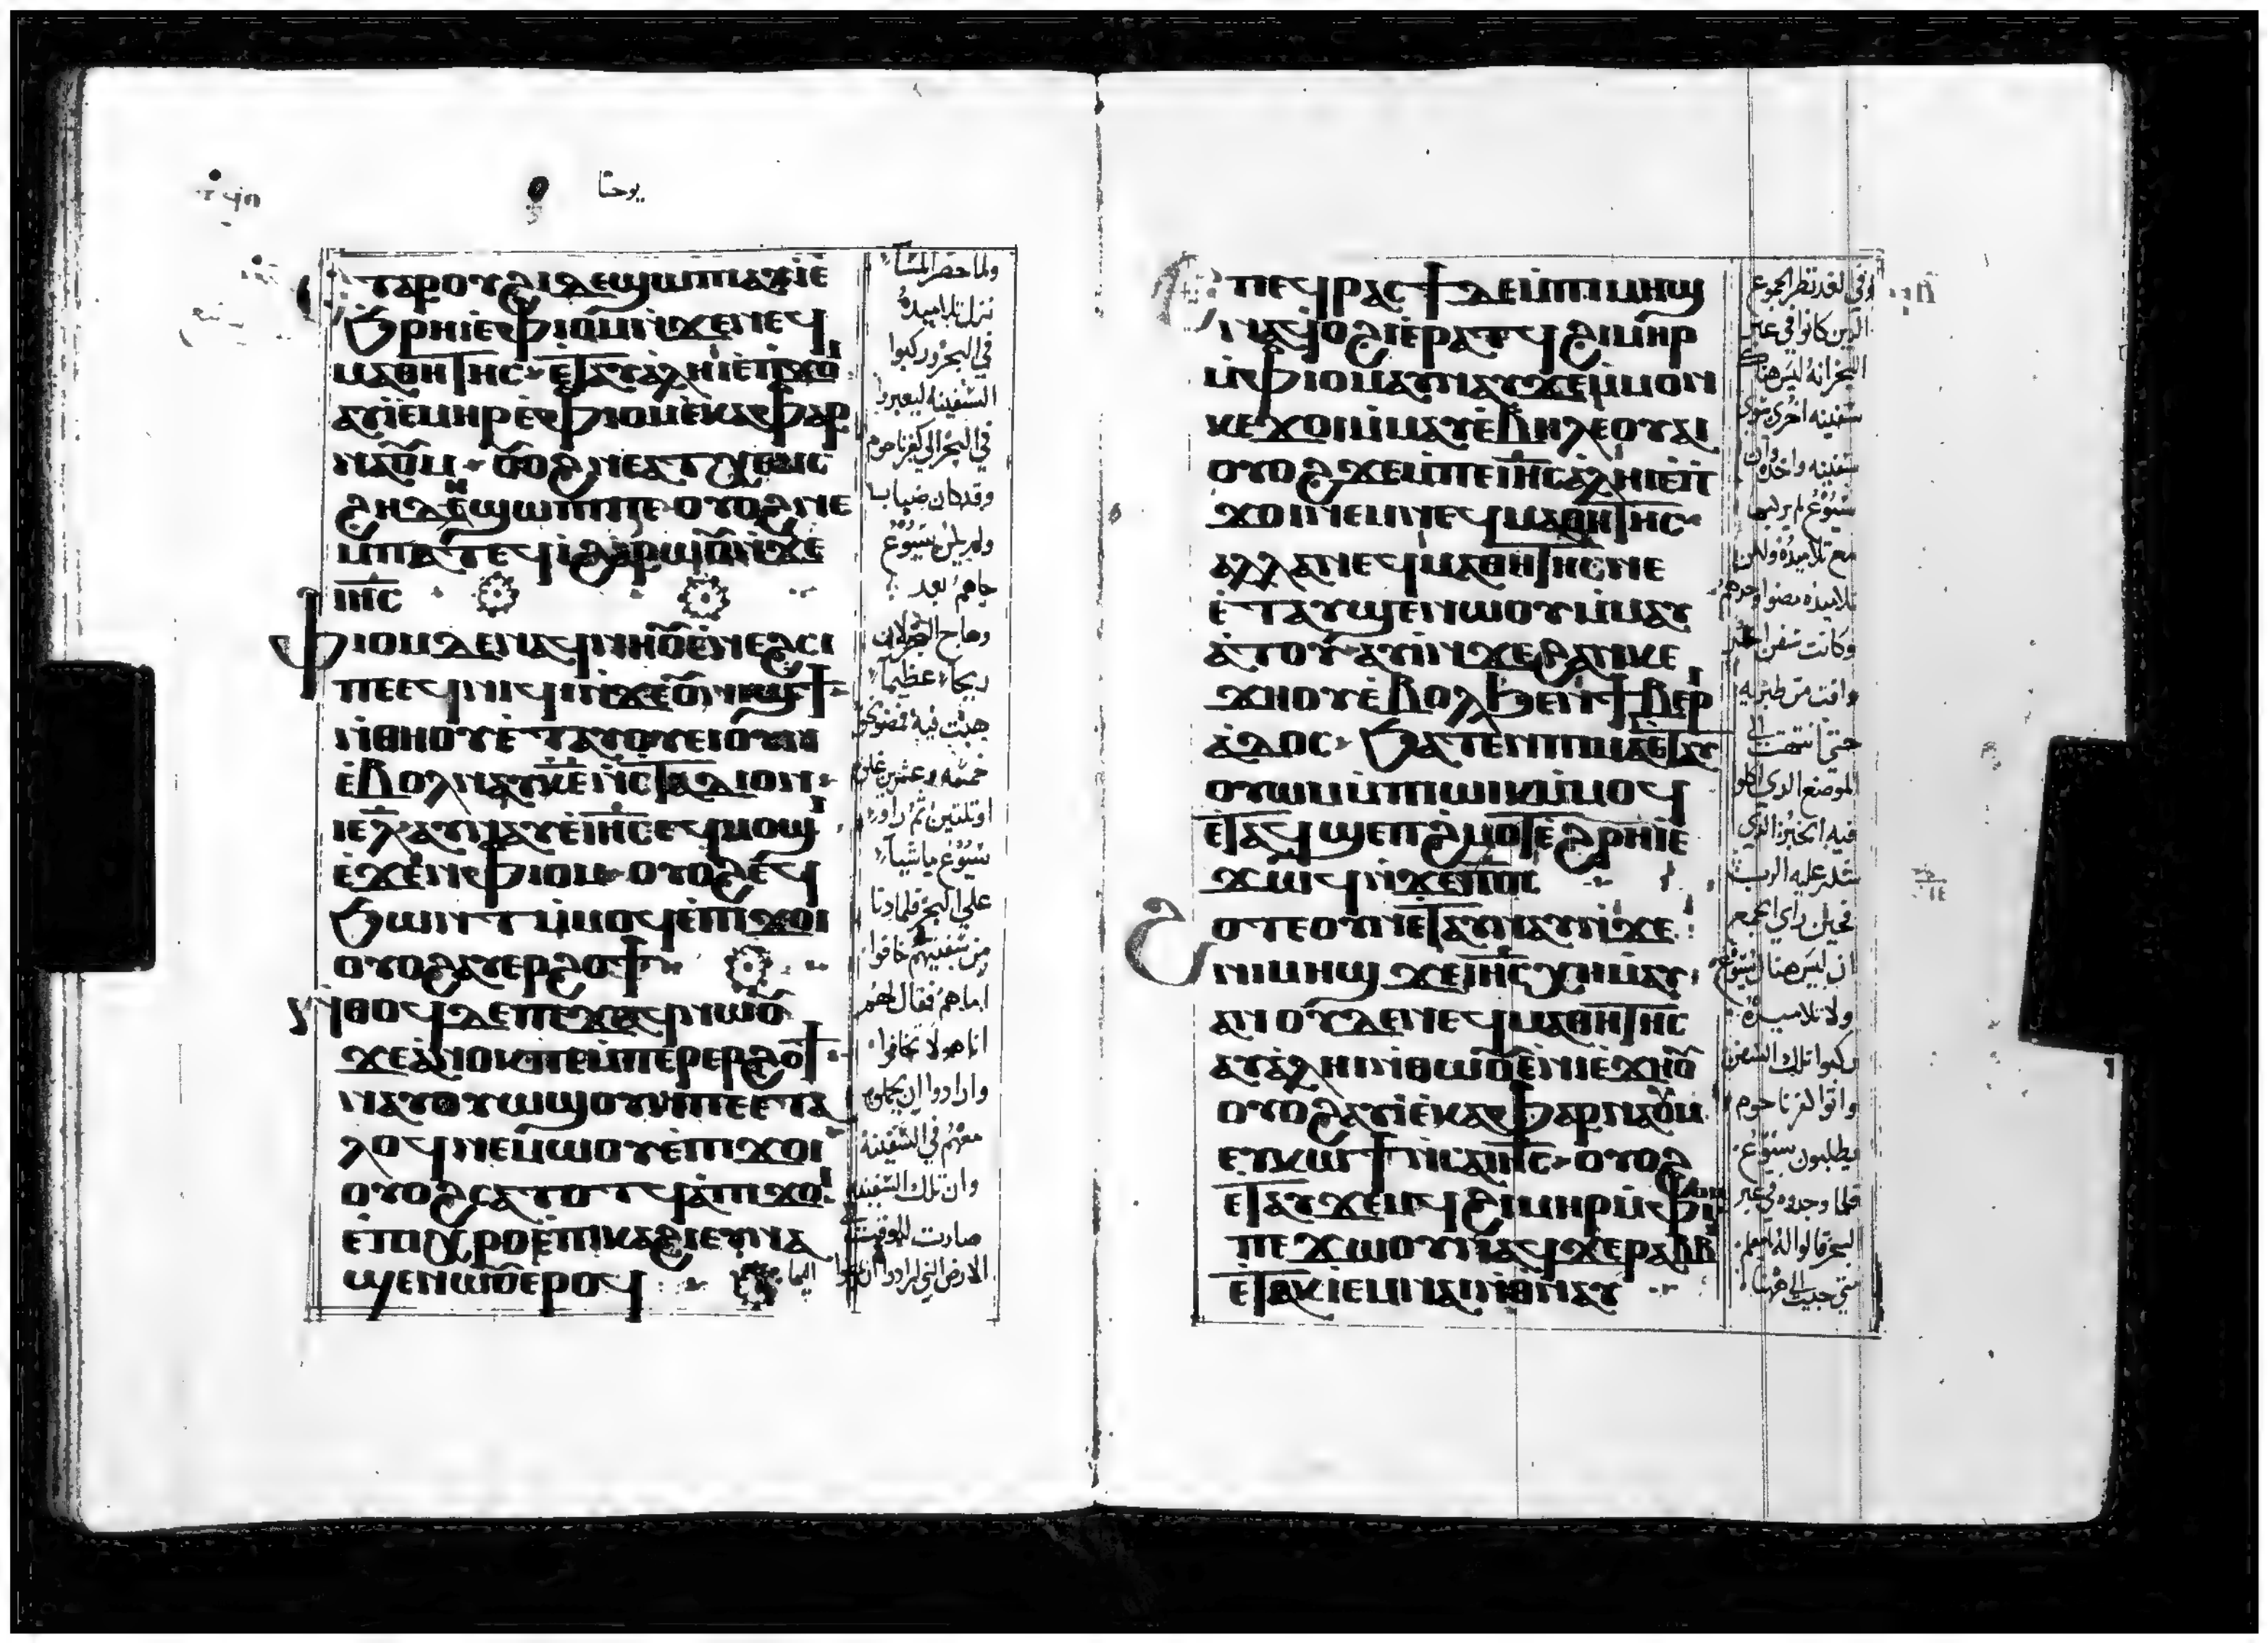 يوحنا
ⲉⲧⲁⲣⲟⲩϩⲓⲇⲉϣⲱⲡⲓⲁⲩⲓⲉ
ϧⲣⲏⲓⲉⲫⲓⲟⲙⲛ̇ϫⲉⲛⲉϥ
ⲙⲁⲑⲏⲧⲏⲥ ⲉ̇ⲧⲁⲩⲁⲗⲏⲓⲉ̇ⲡϫⲟⲓ
ⲁⲩⲓⲉⲙⲏⲣⲉ̇ⲫⲓⲟⲙⲉ̇ⲕⲁⲫⲁⲣ
ⲛⲁⲟⲩⲙ
ⲙ̇ⲡⲁⲧⲉϥⲓ̇ϩⲁⲣⲱⲟⲩⲛ̇ϫⲉ
ⲓⲏⲥ
ⲫⲓⲟⲙⲇⲉⲛⲁϥⲛⲏⲟⲩⲉ̇ⲛⲉϩⲥⲓ
ⲡⲉⲉϥⲛⲓϥⲓⲛ̇ϫⲉⲟⲩⲛⲓϣϯ
ⲛ̇ⲑⲏⲟⲩ ⲉ̇ⲧⲁⲩⲟⲩⲉⲓⲟⲩⲛ
ⲉ̇ⲃⲟⲗⲛⲁⲩⲕⲉ̅ⲛ̇ⲥⲧⲁⲇⲓⲟⲛ
ⲓⲉⲗ̅ⲁⲩⲛⲁⲩⲉ̇ⲓⲏⲥⲉϥⲙⲟϣⲓ
ⲉ̇ϫⲉⲛⲫⲓⲟⲙ ⲟⲩⲟϩⲉ̇ϥ
ϧⲱⲛⲧⲙ̇ⲙⲟϥⲉ̇ⲡⲓϫⲟⲓ
ⲟⲩⲟϩⲁⲩⲉⲣϩⲟϯ
ⲛ̇ⲑⲟϥⲇⲉⲡⲉϫⲁϥⲛⲱⲟⲩ
ϫⲉⲁ̇ⲛⲟⲕⲡⲉⲙ̇ⲡⲉⲣⲉⲣϩⲟϯ
ⲛⲁⲩⲟⲩⲱϣⲟⲩⲛⲡⲉⲉⲧⲁ
ⲗⲟϥⲛⲉⲙⲱⲟⲩⲉ̇ⲡⲓϫⲟⲓ
ⲟⲩⲟϩⲥⲁⲧⲟⲧϥⲁ̇ⲡⲓϫⲟⲓ
ⲉ̇ⲡⲓⲭⲣⲟⲉ̇ⲡⲓⲕⲁϩⲓⲉⲛⲁⲩⲛⲁ
ϣⲉⲛⲱⲟⲩⲉⲣⲟϥ
ولما حضر المسآء
نزل تلاميده
في البحر وركبوا
السفينه ليعبروا
في البحر الي كفرناحوم
ولم يكن يسوع
جاهم بعد
ريحاء عظيماء
يسوع ماشيآء
علي البحر فلما دنا
من سفينتهم خافوا
اما هم فقال لهم
انا هو لا تخافوا
وارادوا ان يحملوه
معهم في السفينة
وان تلك السفينه
صارت للوقت
ⲉⲡⲉϥⲣⲁⲥϯⲇⲉⲙ̇ⲡⲓⲙⲏϣ
ⲛⲁϥⲟϩⲓⲉⲣⲁⲧϥϩⲓⲙⲏⲣ
ⲙ̇ⲫⲓⲟⲙⲁⲩⲛⲁⲩϫⲉⲙ̇ⲙⲟⲛ
ⲕⲉϫⲟⲓⲙ̇ⲙⲁⲩⲉ̇ⲃⲏⲗⲉⲟⲩⲁⲓ
ⲟⲩⲟϩϫⲉⲙ̇ⲡⲉⲓⲏⲥⲁⲗⲏⲓⲉ̇ⲡ
ϫⲟⲓⲛⲉⲙⲛⲉϥⲙⲁⲑⲏⲧⲏⲥ
ⲁⲗⲗⲁⲛⲉϥⲙⲁⲑⲏⲧⲏⲥⲛⲉ
ⲉ̇ⲧⲁⲩϣⲉⲛⲱⲟⲩⲙ̇ⲙⲁⲩ
ⲁ̇ⲧⲟⲩ ⲁⲩⲓ̇ⲛ̇ϫⲉϩⲁⲛⲕⲉ
ϫⲏⲟⲩⲉ̇ⲃⲟⲗϧⲉⲛϯⲃⲉⲣ
ⲁ̇ⲇⲟⲥ ϧⲁⲧⲉⲛⲡⲓⲙⲁⲉⲧⲁⲩ
ⲟⲩⲱⲙⲙ̇ⲡⲓⲱⲓⲕⲙ̇ⲙⲟϥ
ⲉ̇ⲧⲁϥϣⲉⲡϩⲙⲟⲧⲉ̇ϩⲣⲏⲓⲉ
ϫⲱϥⲛ̇ϫⲉⲡⲟⲥ
ϩⲟⲧⲉⲟⲩⲛⲉ̇ⲧⲁⲩⲛⲁⲩⲛ̇ϫⲉ
ⲛⲓⲙⲏϣϫⲉⲓⲏⲥⲭⲏⲙ̇ⲙⲁⲩ
ⲁⲛⲟⲩⲇⲉⲛⲉϥⲙⲁⲑⲏⲧⲏⲥ
ⲁⲩⲁ̇ⲗⲏⲓⲛ̇ⲑⲱⲟⲩⲉ̇ⲛⲓⲉ̇ϫⲏⲟⲩ
ⲟⲩⲟϩⲁⲩⲓ̇ⲉ̇ⲕⲁⲫⲁⲣⲛⲁⲟⲩⲙ
ⲉⲩⲕⲱϯⲛ̇ⲥⲁⲓⲏⲥ ⲟⲩⲟϩ
ⲉ̇ⲧⲁⲩϫⲉⲙϥϩⲓⲙⲏⲣⲙ̇ⲫⲓⲟⲙ
ⲡⲉϫⲱⲟⲩⲛⲁϥϫⲉⲣⲁⲃⲃⲓ
ⲉ̇ⲧⲁⲕⲓ̇ⲉⲙⲛⲁⲓⲛ̇ⲑⲛⲁⲩ
وفي الغد نظر الجموع
الدين كانوا في عبر
البحر انه ليس هناك
سفينه اخري سوي
سفينه واحده وان
يسوع لم يركبها
مع تلاميده ولكن
تلاميده مضوا وحدهم
وافت من طبريه
حتي انتهت الي
الموضع الدي اكلوا
فيه الخبز الدي
شكر عليه الرب
فحين راي الجمع
ان ليس هنا يسوع
ولا تلاميده
ركبوا تلك السفن
واتوا كفرناحوم
يطلبون يسوع
فلما وجدوه في عبر
البحر قالوا له يامعلم
متي جيت الي ههنا